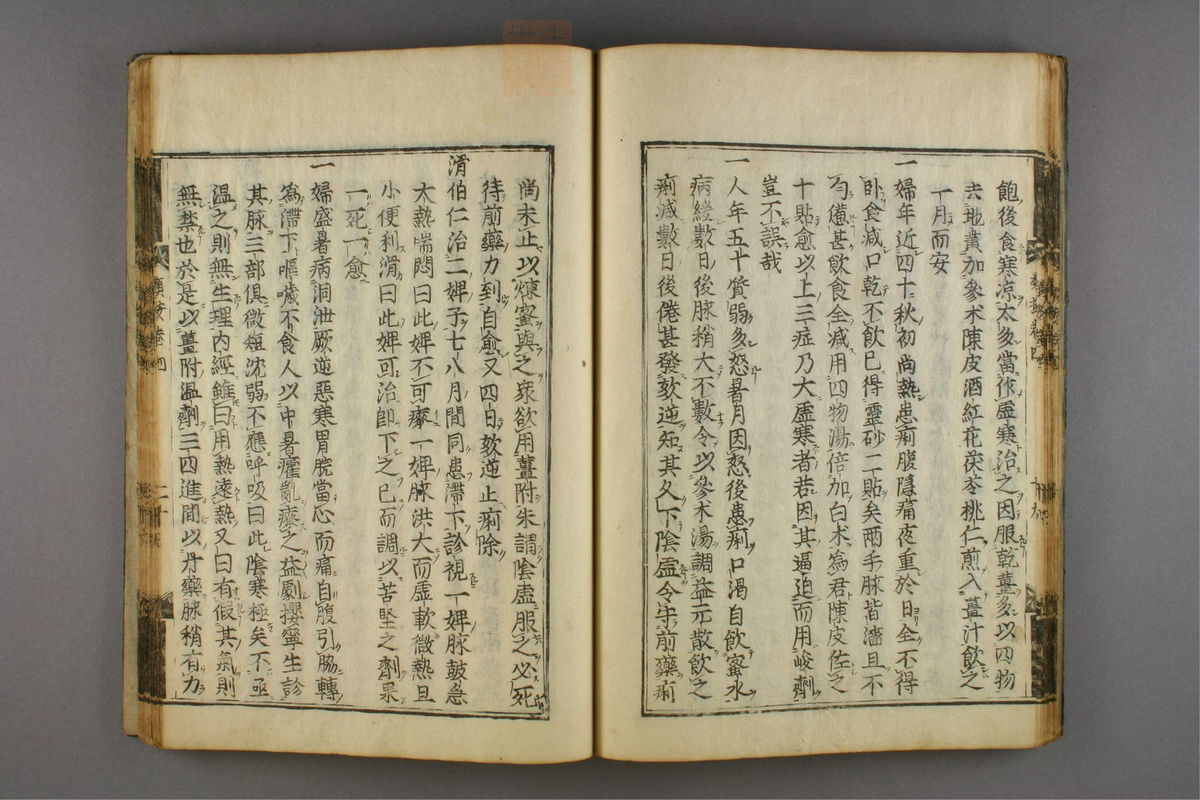 飽後食寒凉太多當作虛寒治之因服乾薑多以四物
去地黄加參朮陳皮酒紅花茯苓桃仁煎入薑汁飲之
一月而安
一婦年近四十秋初尚熱患痢腹隱痛夜重於日全不得
卧食减口乾不飲已得靈砂二貼矣兩手脉皆濇且不
勻憊甚飲食全减用四物湯倍加白朮為君陳皮佐之
十貼愈以上三症乃大虛寒者若因其逼迫而用峻劑
豈不誤哉
一人年五十質弱多怒暑月因怒後患痢口渴自飲蜜水
病緩數日後脉稍大不數令以參朮湯調益元散飲之
痢减數日後倦甚發欬逆知其久下陰虛令守前藥痢
尚未止以煉蜜與之衆欲用薑附朱謂陰虛服之必死
待前藥力到自愈又四日欬逆止痢除
滑伯仁治二婢子七八月間同患滯下診視一婢脉鼓急
大熱喘悶曰此婢不可療一婢脉洪大而虛軟微熱且
小便利滑曰此婢可治即下之已而調以苦堅之劑果
一死一愈
一婦盛暑病洞泄厥逆惡寒胃脘當心而痛自腹引脇轉
為滯下嘔噦不食人以中暑霍亂療之益劇攖寧生診
其脉三部俱微短沈弱不應呼吸曰此陰寒極矣不亟
溫之則無生理内經雖曰用熱遠熱又曰有假其氣則
無禁也於是以薑附溫劑三四進間以丹藥脉稍有力